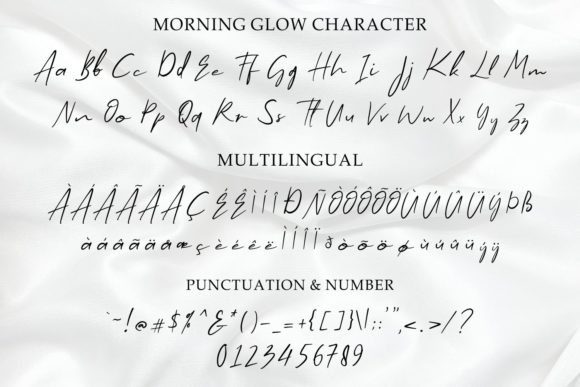 MORNING GLOW CHARACTER
Aa Bb Cc Dd Ee Ff Gg Hh Ii Jj Kk Ll Mm
Nn Oo Pp Qq Rr Ss Tt Uu Vv Ww Xx Yy Zz
MULTILINGUAL
ÀÁÂÃÄÅÇÉÊÌÍÎÐÑÒÓÔÕÖÙÚÛÜýÞß
àáâãäåæçèéêëÌÍÎÏðòõöøùúûüýÿ
PUNCTUATION & NUMBER
`~!@#$%^&*()-_=+{[]}\|;:'",<.>/?
0123456789